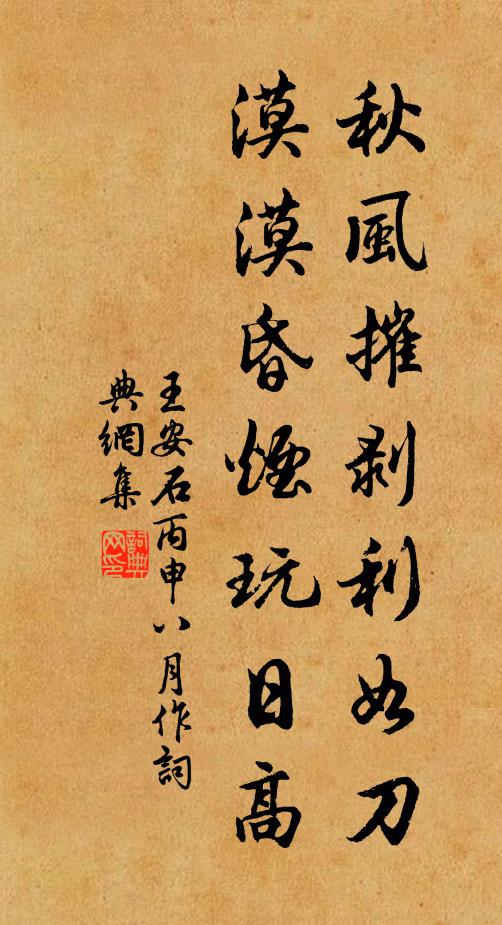 秋風摧剥利如刀
漠漠昏煙玩日高
王安石丙申八月作詞
典網集
詞典
网印